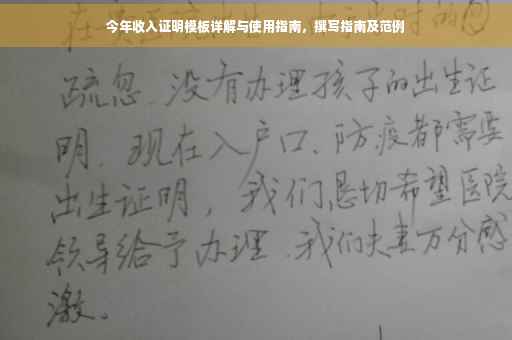 今年收入证明模板详解与使用指南，撰写指南及范例
疏忽、没有办理孩子的出生证
明、现在入户口、防疫都需要
出生证明，我们恳切希望医院
领导给予办理、我们夫妻万分感
激。